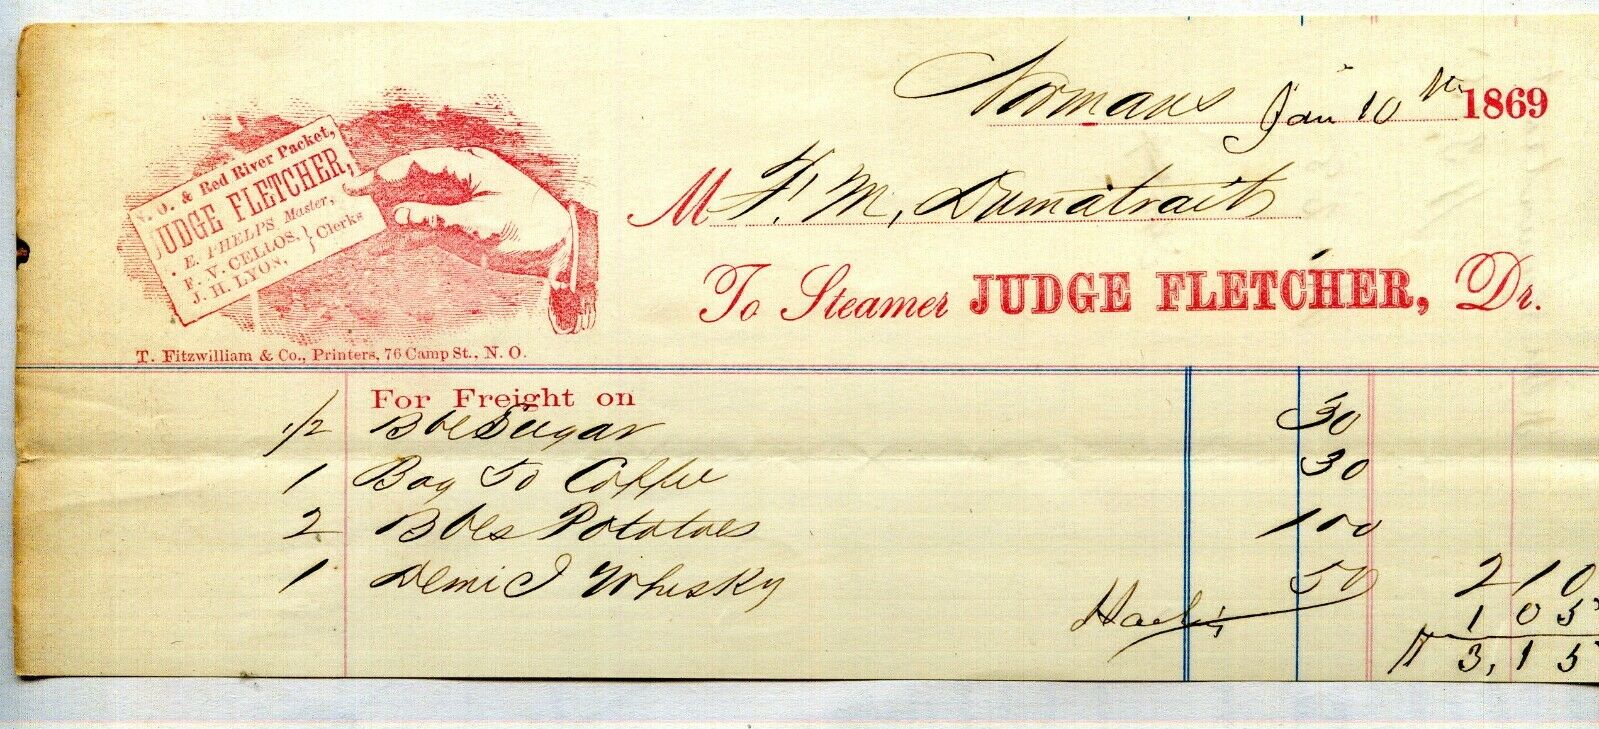 N. O. & Red River Packet,
JUDGE FLETCHER,
E. PHELPS Master,
F. V. CELLOS,
J. H. LYON, } Clerks
T. Fitzwilliam & Co., Printers, 76 Camp St., N. O.
Normans Jan 10th 1869
M F. M. Dumatrait
To Steamer JUDGE FLETCHER, Dr.
For Freight on
1/2 Bbl Sugar 30
1 Bag Coffee 30
2 Bbls Potatoes 100
1 Demi J Whisky 50 210
105
3,15